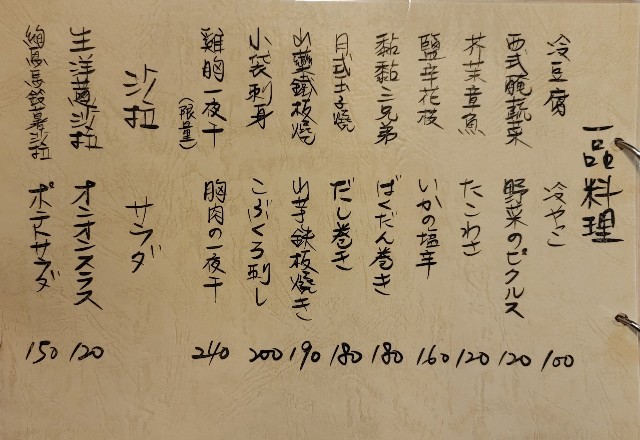 一品料理
冷豆腐 冷やっこ 100
西式醃蔬菜 野菜のピクルス 120
芥茉章魚 たこわさ 120
鹽辛花枝 いかの塩辛 160
黏黏三兄弟 ばくだん巻き 180
日式玉子燒 だし巻き 180
山藥鐵板燒 山芋鉄板焼き 190
小袋刺身 こぶくろ刺し 200
雞胸一夜干(限量) 胸肉の一夜干 240
沙拉 サラダ
生洋蔥沙拉 オニオンスラス 120
絢鳥馬鈴薯沙拉 ポテトサラダ 150